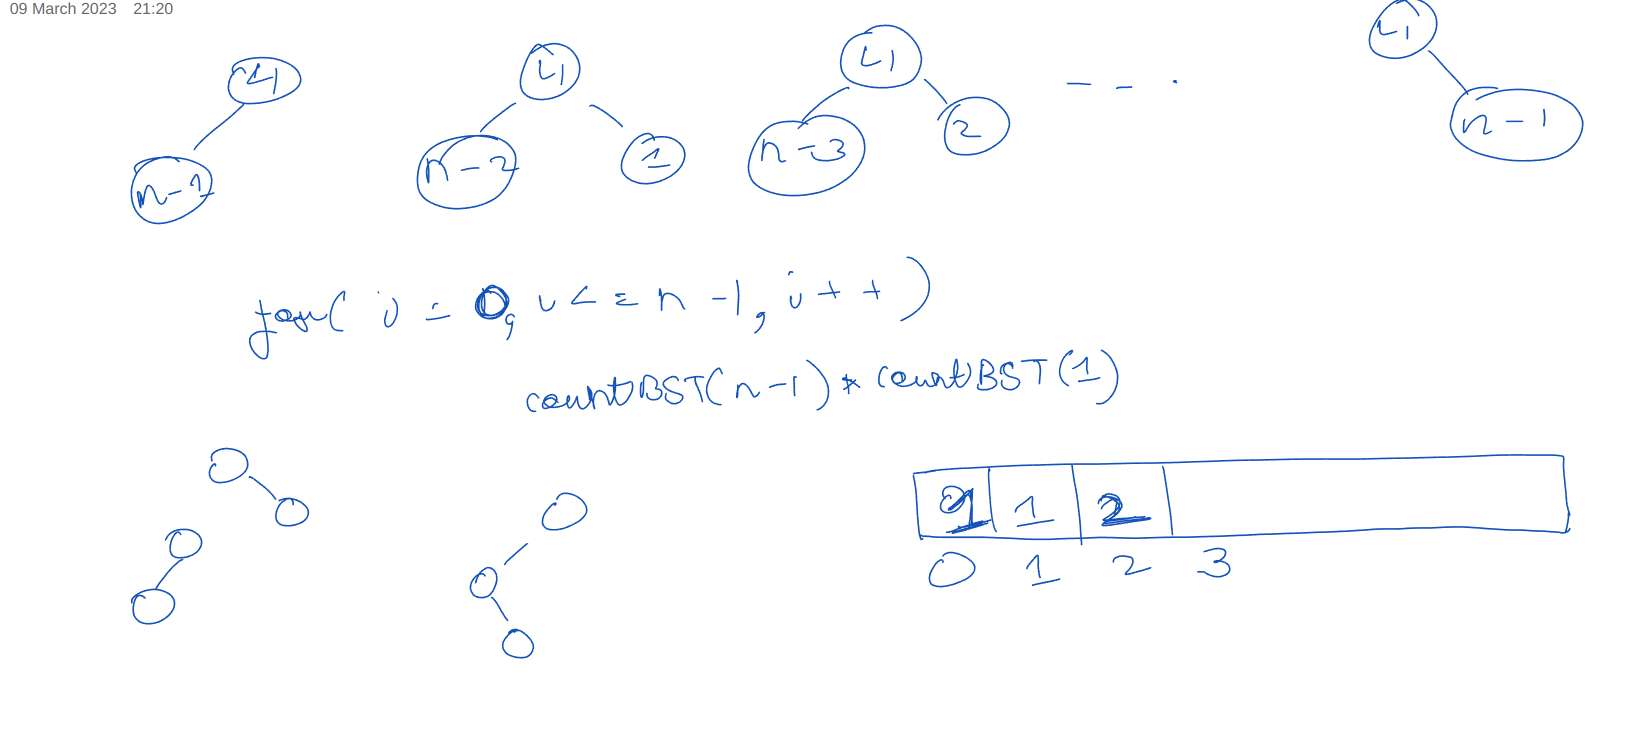 09 March 2023 21:20
n-1
n-2 1
n-3 2
- - .
n-1
for( i = 0, i <= n-1, i++)
countBST(n-1) * countBST(1)
1 1 2
0 1 2 3